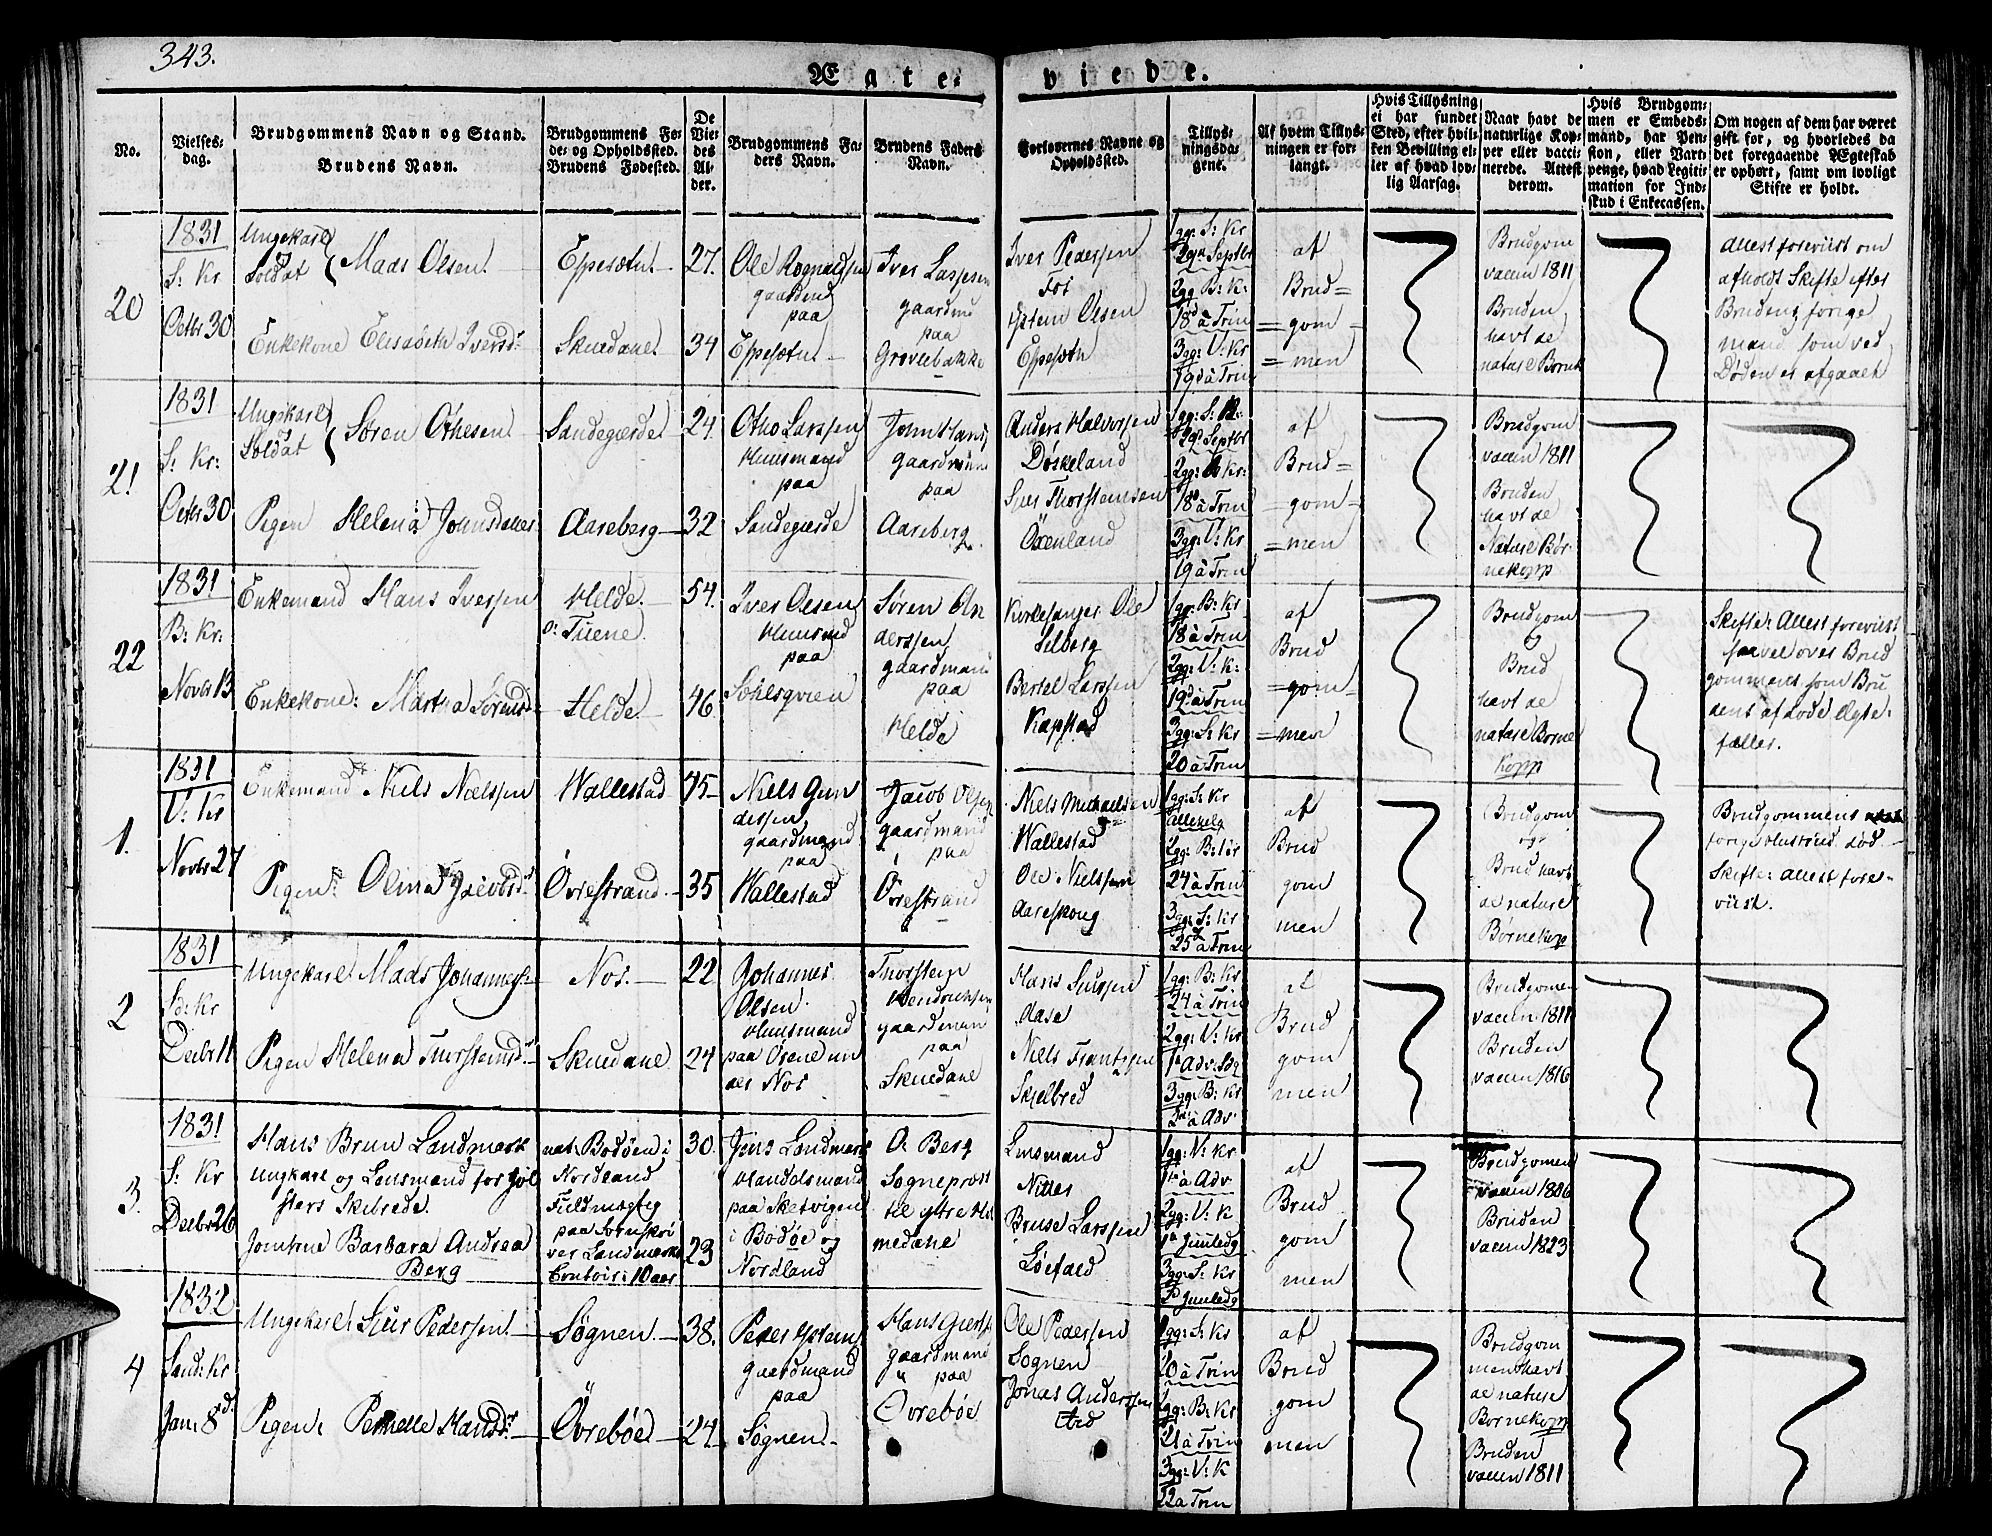 343.
Ægte-
viede.
No.
Vielses-
dag.
Brudgommens Navn og Stand.
Brudens Navn.
Brudgommens Fø-
de- og Opholdssted.
Brudens Fødested.
De
Vie-
des
Al-
der.
Brudgommens Fa-
ders Navn.
Brudens Faders
Navn.
Forlovernes Navne og
Opholdssted.
Tillys-
ningsda-
gene.
Af hvem Tillys-
ningen er for-
langt.
Hvis Tillysning
ei har fundet
Sted, efter hvil-
ken Bevilling el-
ler af hvad lov-
lig Aarsag.
Naar havt de
naturlige Kop-
per eller vacci-
nerede. Attest
derom.
Hvis Brudgom-
men er Embeds-
mand, har Pen-
sion, eller Vart-
penge, hvad Legiti-
mation for Ind-
skud i Enkecassen.
Om nogen af dem har været
gift før, og hvorledes da
det foregaaende Ægteskab
er ophørt, samt om lovligt
Skifte er holdt.
20
1831
S: Kr
Octbr 30
Ungekarl
Soldat
Mads Olsen
Enkekone Elisabeth Iversd:
Espesætn
Skuedane
27.
34
Ole Rognaldsen
gaardmd
paa
Espesætn
Iver Lassesen
gaardmd
paa
Grovlebakke
Iver Pedersen
Fos
Ystein Olsen
Espesætn
1gg: S: Kr
2gg B: K:
18d à Trin
3gg: V: Kr
19d à Trin
af
Brud=
=gom=
=men
Brudgom
vaccin 1811
Bruden
havt de
Attest foreviist om
afholdt Skifte efter
Brudens forige
mand som ved
Døden er afgaaet
21
1831
S: Kr:
Octbr 30
Ungekarl
Soldat
Søren Othesen
Pigen Helena Johnsdatter
Sandegjærde
Aareberg
24
32
Otho Larssen
Huusmand
paa
Sandegjærde
John Hans
gaardmand
paa
Aareberg
Anders Halvorsen
Døskeland
Sjur Thorstensen
Öxenland
18d à Trin
3gg: V: Kr
19 à Trin
af
Brud=
=gom=
=men
Brudgom
vaccin 1811
Bruden
havt de
Nature Bør-
nekopp
22
1831
B: Kr:
Novbr 13
Enkemand Hans Iversen
Enkekone: Martha Sørensd:
Helde
o: Tuene
Helde
54.
46.
Iver Olsen
Huusmd
paa
Søren An
derssen
gaardmand
paa
Helde
Kirkesanger Ole
Silberg
Bertel Larssen
Kapstad
1gg: B: Kr
18 à Trin
2gg: V: K:
19d à Trin
3gg: S: Kr
20 à Trin
af
Brud
=gom=
=men
Brudgom
og
Brud
havt de
nature Børne
Kopp
Skifte: Attest foreviist
saavel over Brud
gommens som Bru
dens afdøde Ægte-
fæller.
1.
1831
V: Kr
Novbr 27
Enkemand Niels Nielssen
Pigen: Olina Jacobsd:
Wallestad
Övrestrand
45
35
Niels Gun
dersen
gaardmand
paa
Wallestad
Jacob Olsen
gaardmand
paa
Övrestrand
Niels Michaelsen
Wallestad
Ole Nielssen
Aareskoug
1gg: S: Kr
Allehelg
2gg: B: Kr
24 à Trin
3gg: S: Kr
25 à Trin
af
Brud
gom
men
Brudgom
og
Brud havt
de nature
Børnekopp
Brudgommens
forige Hustrue død.
Skifte: Attest fore-
viist.
2
1831
S: Kr
Decbr 11
Ungekarl Mads Johannes:
Pigen Helena Thorsteinsd:
Nos.
Skuedane
22
24
Johannes
Olsen
Huusmand
paa Ösene un
der Nos
Thorstein
Hendrichsen
gaardmand
paa
Skuedane
Hans Siurssen
Aase
Niels Frantzen
Skielbred
1gg: B: Kr
24 à Trin
2gg: V: Kr
3gg: B: Kr
3die à Adv
af
Brud
gom
men
Brudgommen
vaccin 1811
Bruden
vaccin 1816
3.
1831
S: Kr
Decbr 26
Hans Brun Landmark
Ungkarl og Lensmand for Jøl
sters Skibrede.
Jomfrue Barbara Andrea
Berg
nat: Bodøen i
Nordland
paa Sorenskri
ver Landmarks
Contoir: 10 aar
30.
23
Jens Landmark
Handelsmand
i Bodøe og
Nordland
A: Berg
Sogneprest
til yttre Hol
medahl
Lensmand
Nitter
Bruse Larssen
1gg: V: Kr
1te à Adv
2gg: V: K
3gg: S: Kr
af
Brud
gom
men
Brudgommen
vaccin 1806
Bruden
vaccin 1823
4
1832
Sand: Kr
Jan: 8d:
Ungekarl Siur Pedersen
Pigen: Pernelle Hansd:
Søgnen
Övrebøe
38.
24
Peder Ystein
gaardmand
paa
Søgnen
gaardmand
paa
Övrebøe
Ole Pedersen
Sognen
Jonas Anderssen
1gg: S: Kr
20 à Trin
2gg: B: Kr
21 à Trin
3gg: V: K
22 à Trin
af
Brud
gom
men
Brudgom
men havt
de nature
Børnekopp
Bruden
vaccin 1811